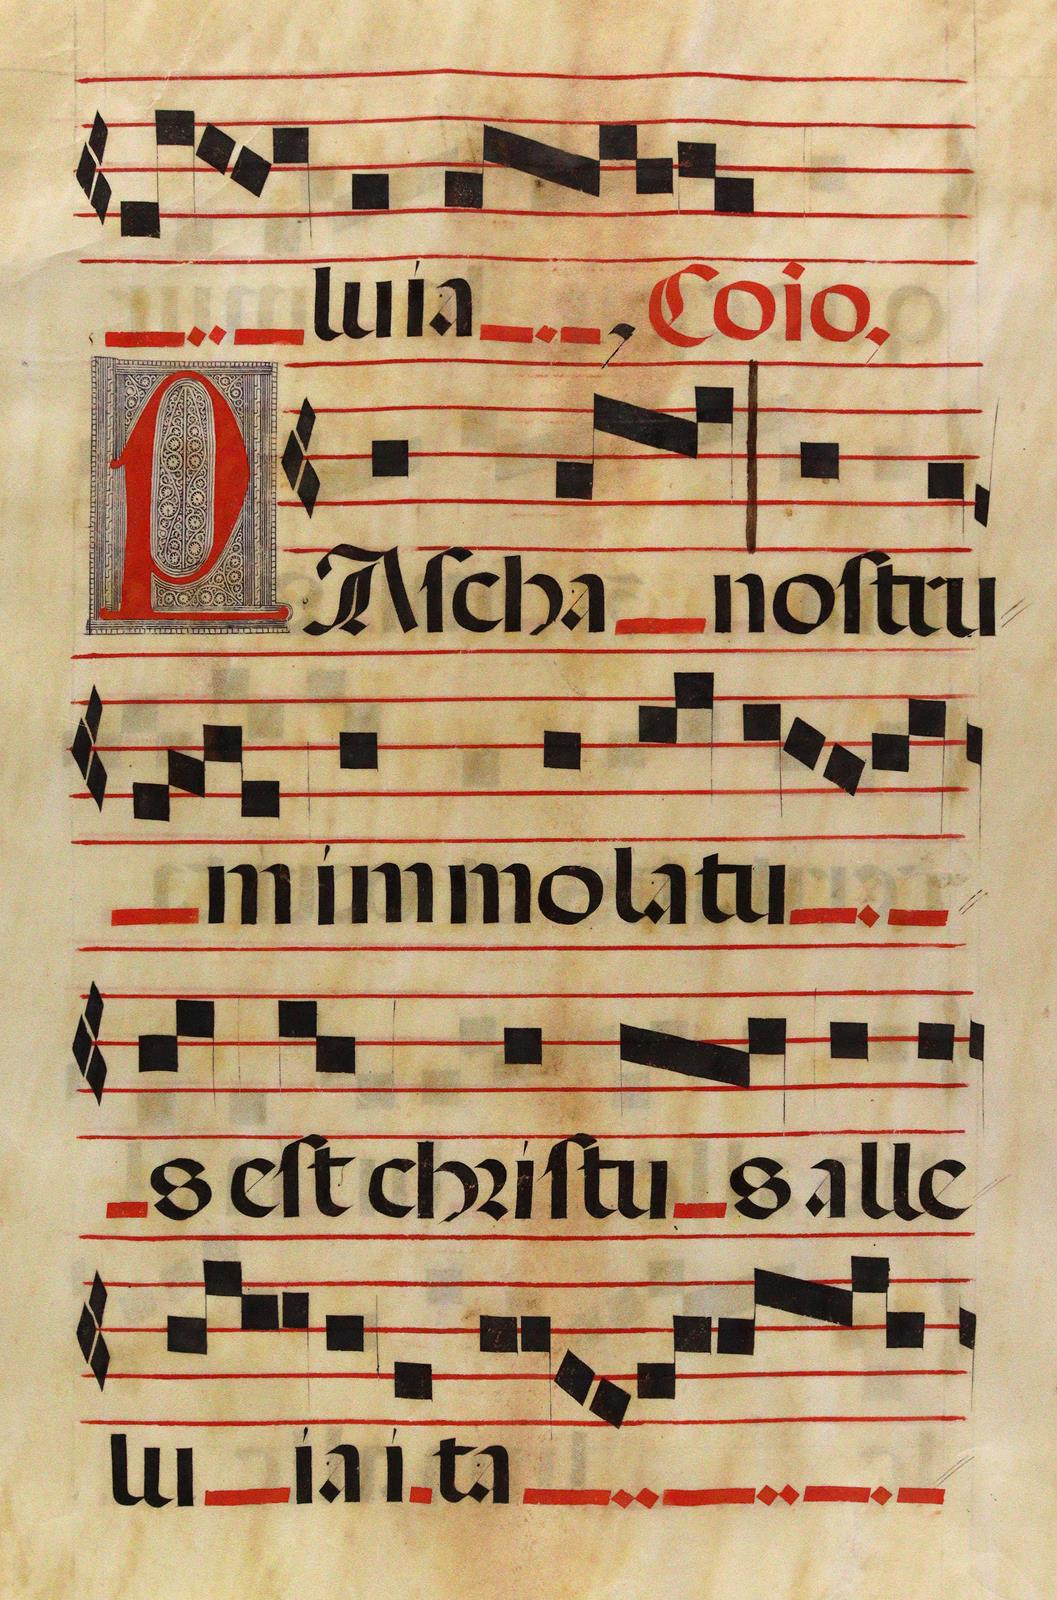 luia, Coio,
PAscha nostru
mimmolatu
s est christu s alle
lu ia i ta